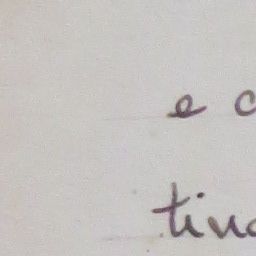 e c
tin